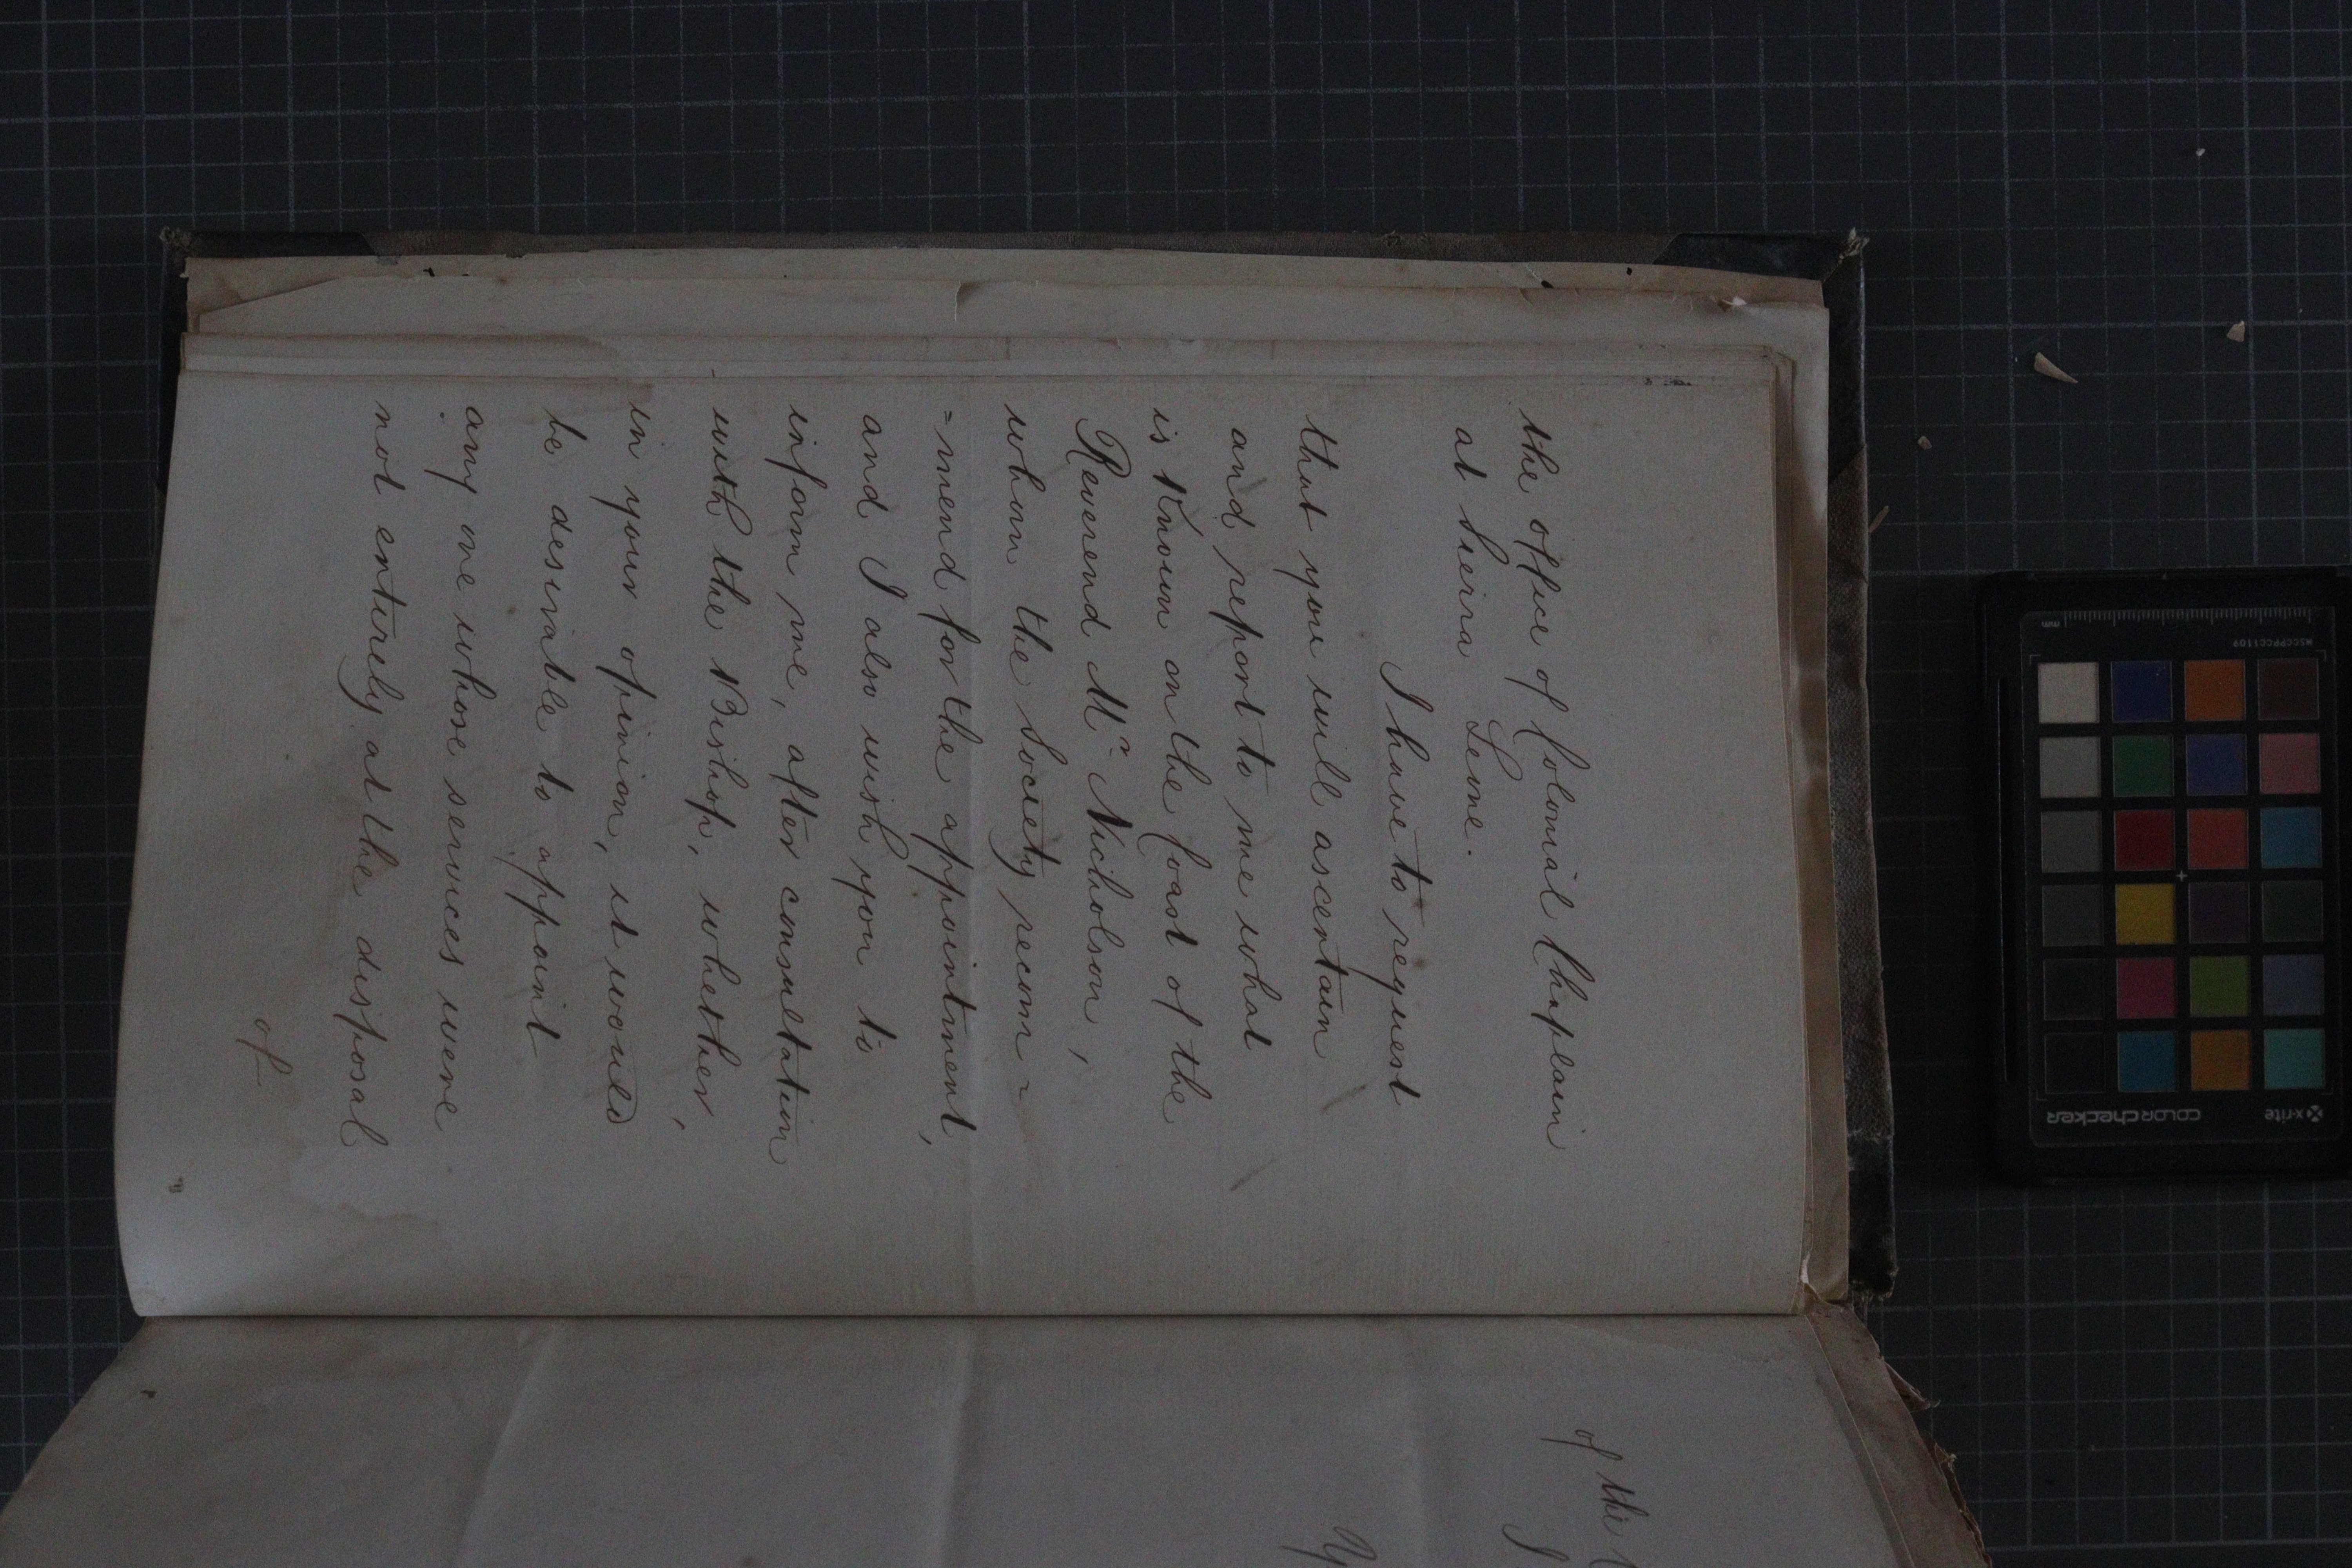 the office of Colonial Chaplain
at Sierra Leone.
I have to request
that you will ascertain
and report to me what
is Known on the Coast of the
Reverend Mr Nicholson,
whom the Society recom=
=mend for the appointment,
and I also wish you to
inform me, after consultation
with the Bishop, whether,
in your opinion, it would
be desirable to appoint
any one whose services were
not entirely at the disposal
of
of the
I
mm
MSCCPPCC1109
x-rite
colorchecker